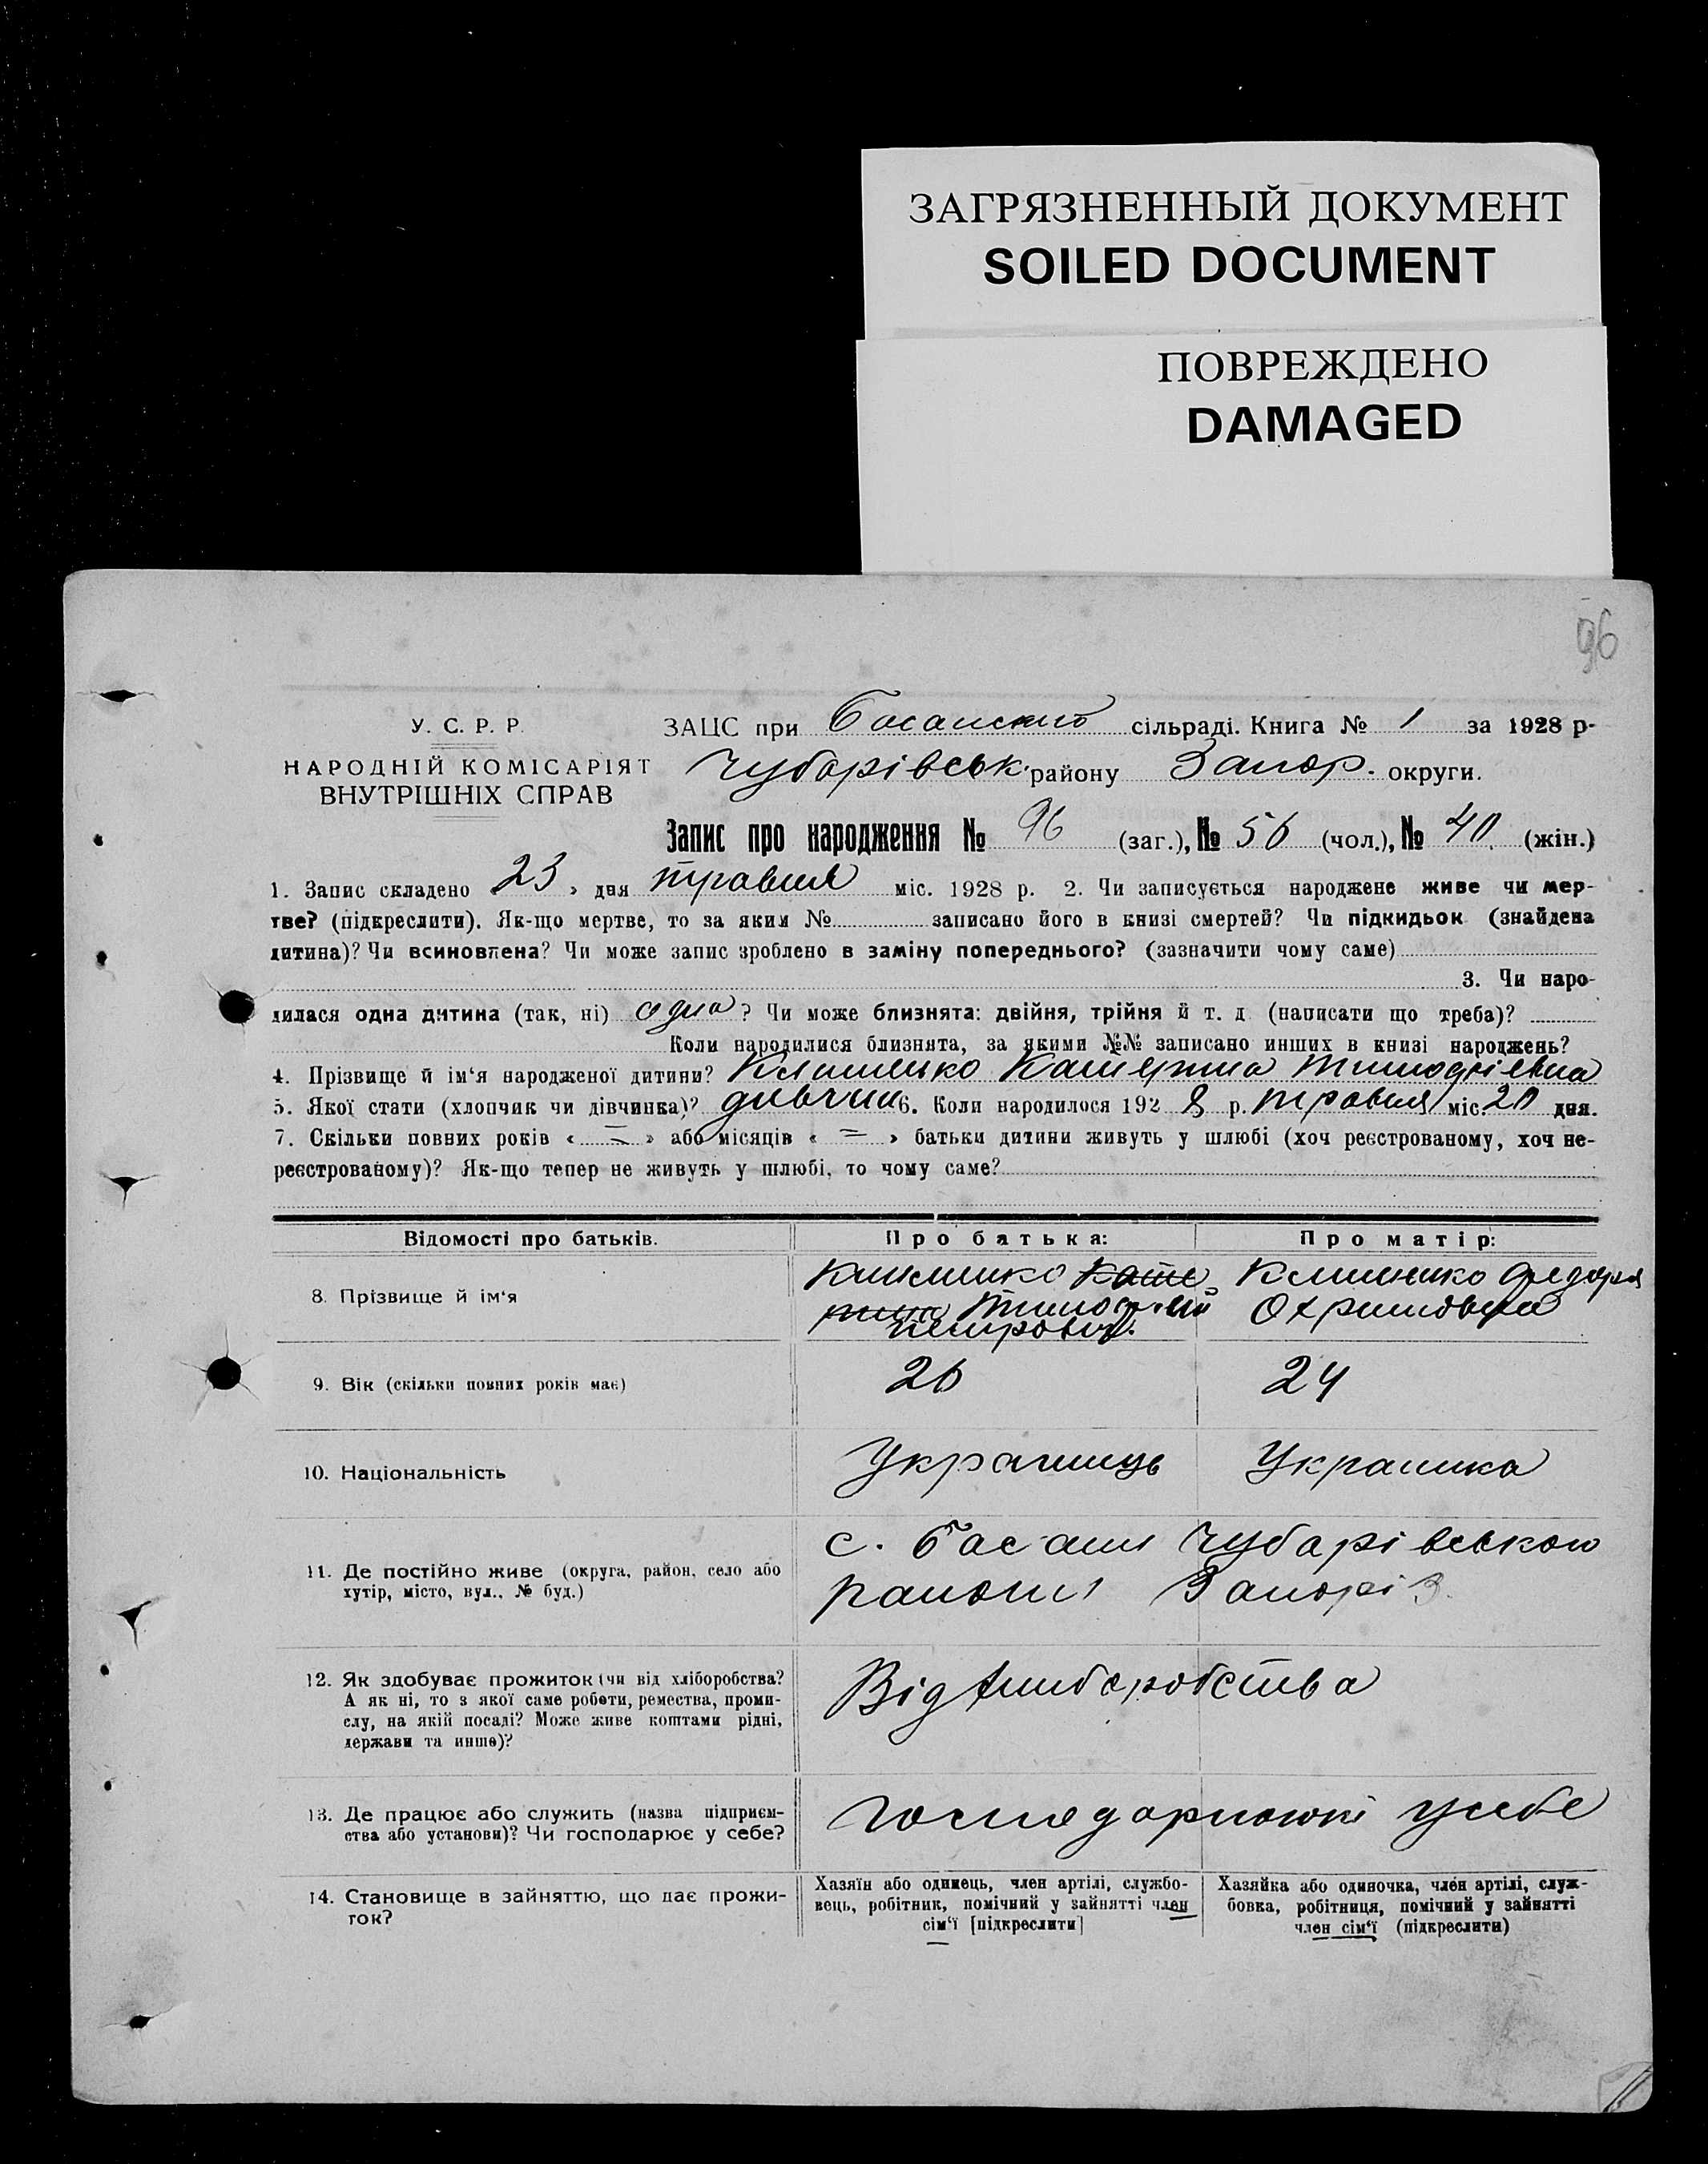 ЗАГРЯЗНЕННЫЙ ДОКУМЕНТ
SOILED DOCUMENT
ПОВРЕЖДЕНО
DAMAGED
96
У. С. Р. Р.
НАРОДНІЙ КОМІСАРІЯТ
ВНУТРІШНІХ СПРАВ
ЗАЦС при Басанські сільраді. Книга № 1 за 1928 р-
Чубарівськ. району Запор. округи.
Запис про народження № 96 (заг.), № 56 (чол.), № 40. (жін.)
1. Запис складено « 23 » дня травня міс. 1928 р. 2. Чи записується народжене живе чи мер-
тве? (підкреслити). Як-що мертве, то за яким № записано його в книзі смертей? Чи підкидьок (знайдена
дитина)? Чи всиновлена? Чи може запис зроблено в заміну попереднього? (зазначити чому саме)
3. Чи наро-
дилася одна дитина (так, ні) одна? Чи може близнята: двійня, трійня й т. д. (написати що треба)?
Коли народилися близнята, за якими №№ записано инших в книзі народжень?
4. Прізвище й ім‘я народженої дитини? Клименко Катерина Тимофієвна
5. Якої стати (хлопчик чи дівчинка)? дивчин 6. Коли народилося 192 8 р. травня міс. 20 дня.
7. Скільки повних років « = » або місяців « = » батьки дитини живуть у шлюбі (хоч реєстрованому, хоч не-
реєстрованому)? Як-що тепер не живуть у шлюбі, то чому саме?
Відомості про батьків.
Про батька:
Про матір:
8. Прізвище й ім‘я
Клименко Кате
рина Тимофий
Петрович.
Клименко Федора
Охримовна
9. Вік (скільки повних років має)
26
24
10. Національність
Украинць
Украинка
11. Де постійно живе (округа, район, село або
хутір, місто, вул., № буд.)
с. Басань Чубарівського
района Запоріз.
12. Як здобуває прожиток (чи від хліборобства?
А як ні, то з якої саме роботи, ремества, проми-
слу, на якій посаді? Може живе коштами рідні,
держави та инше)?
Від хлиборобства
13. Де працює або служить (назва підприєм-
ства або установи)? Чи господарює у себе?
господарюють у себе
14. Становище в зайняттю, що дає прожи-
ток?
Хазяїн або одинець, член артілі, службо-
вець, робітник, помічний у зайнятті член
сім‘ї [підкреслити]
Хазяйка або одиночка, член артілі, служ-
бовка, робітниця, помічний у зайнятті
член сім‘ї (підкреслити)